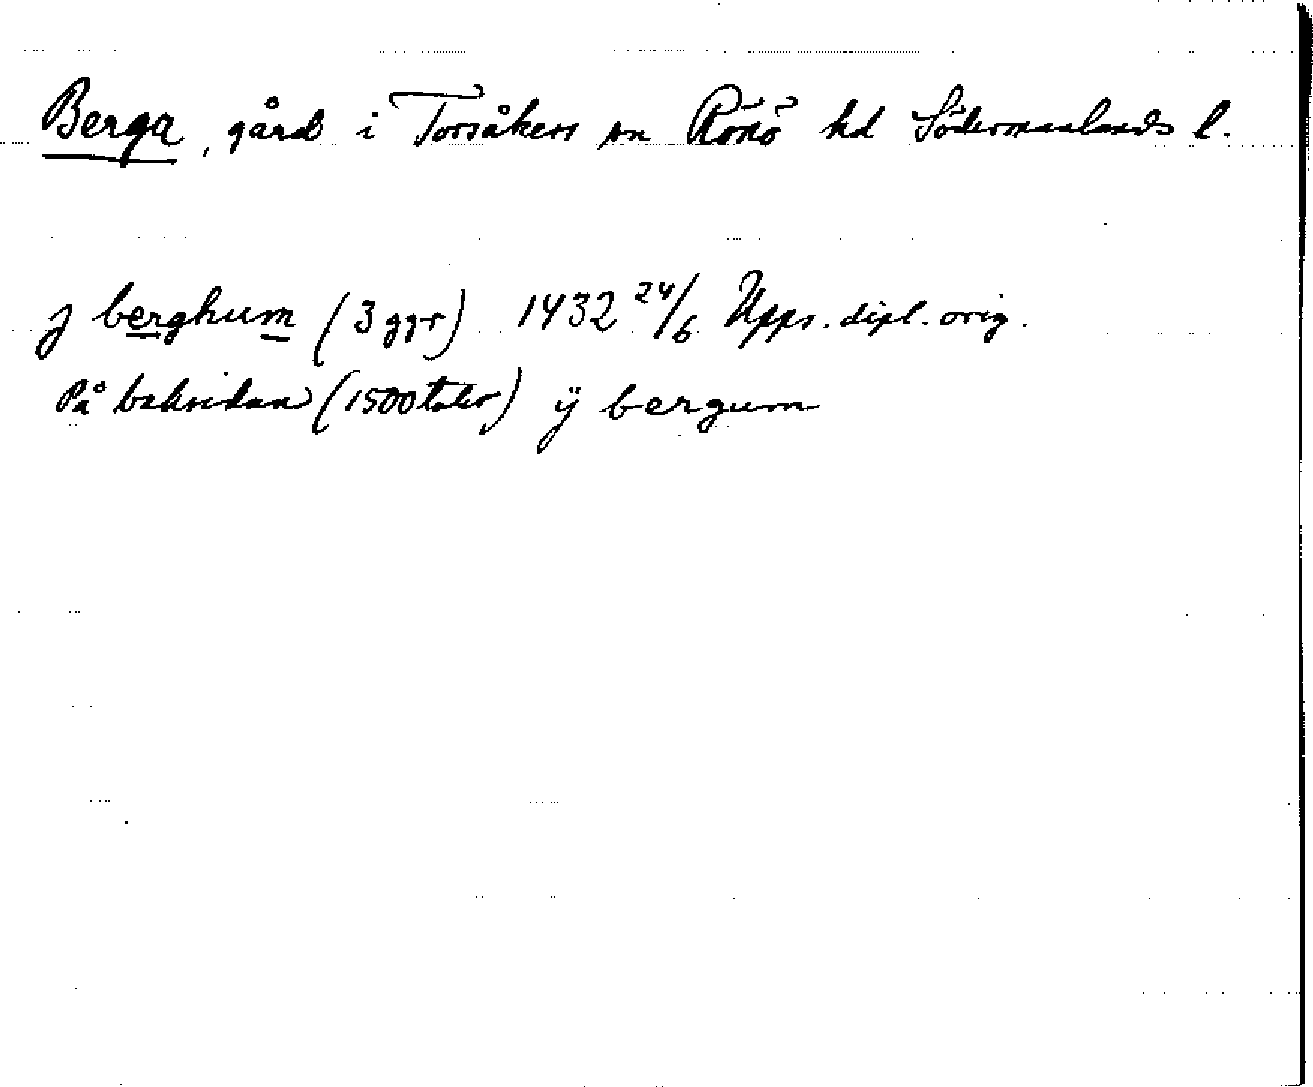 Berga, gård i Torsåkers sn Rönö hd Södermanlands l.
j berghum (3 ggr) 1432 24/6 Upps. dipl. orig.
På baksidan (1500 talet) ÿ bergum